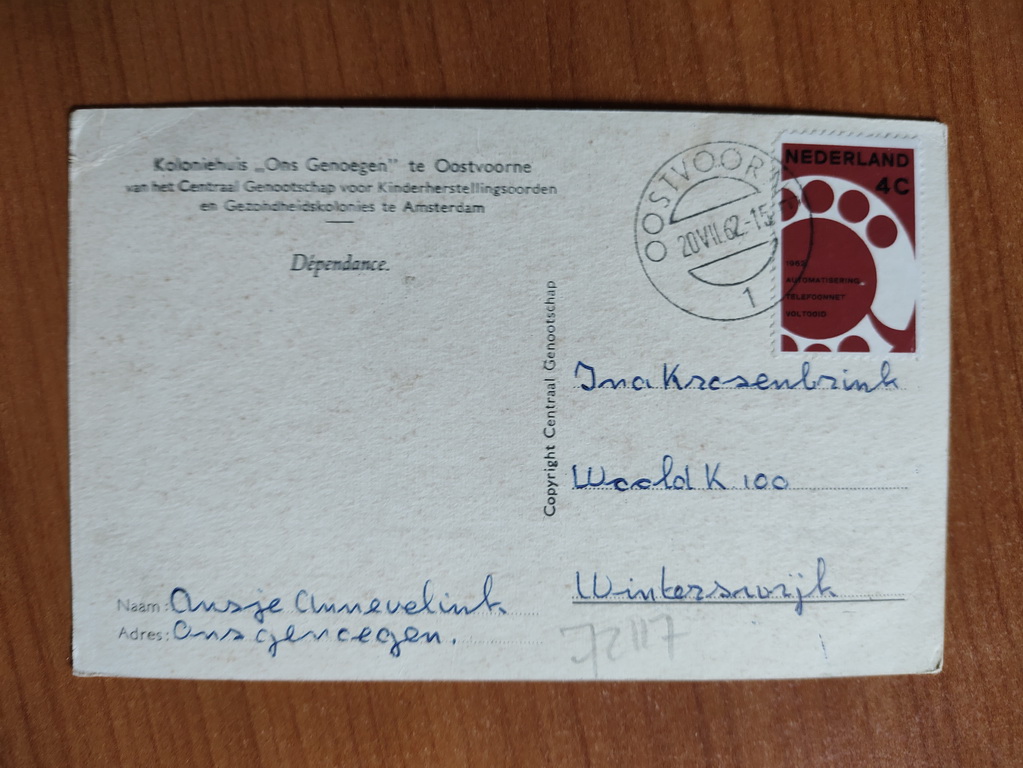 Koloniehuis „Ons Genoegen” te Oostvoorne
van het Centraal Genootschap voor Kinderherstellingsoorden
en Gezondheidskolonies te Amsterdam
Dépendance.
Copyright Centraal Genootschap
OOSTVOORNE
20 VII.62.-15
1
NEDERLAND
4C
1962
AUTOMATISERING
TELEFOONNET
VOLTOOID
Ina Kroesenbrink
Woold K 100
Winterswijk
Naam: Ansje Annevelink
Adres: Ons genoegen.
72117